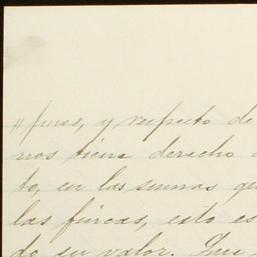 fines, y respecto de
nos tiene derecho
to, en las sumas que
las fincas, esto es
do su valor.